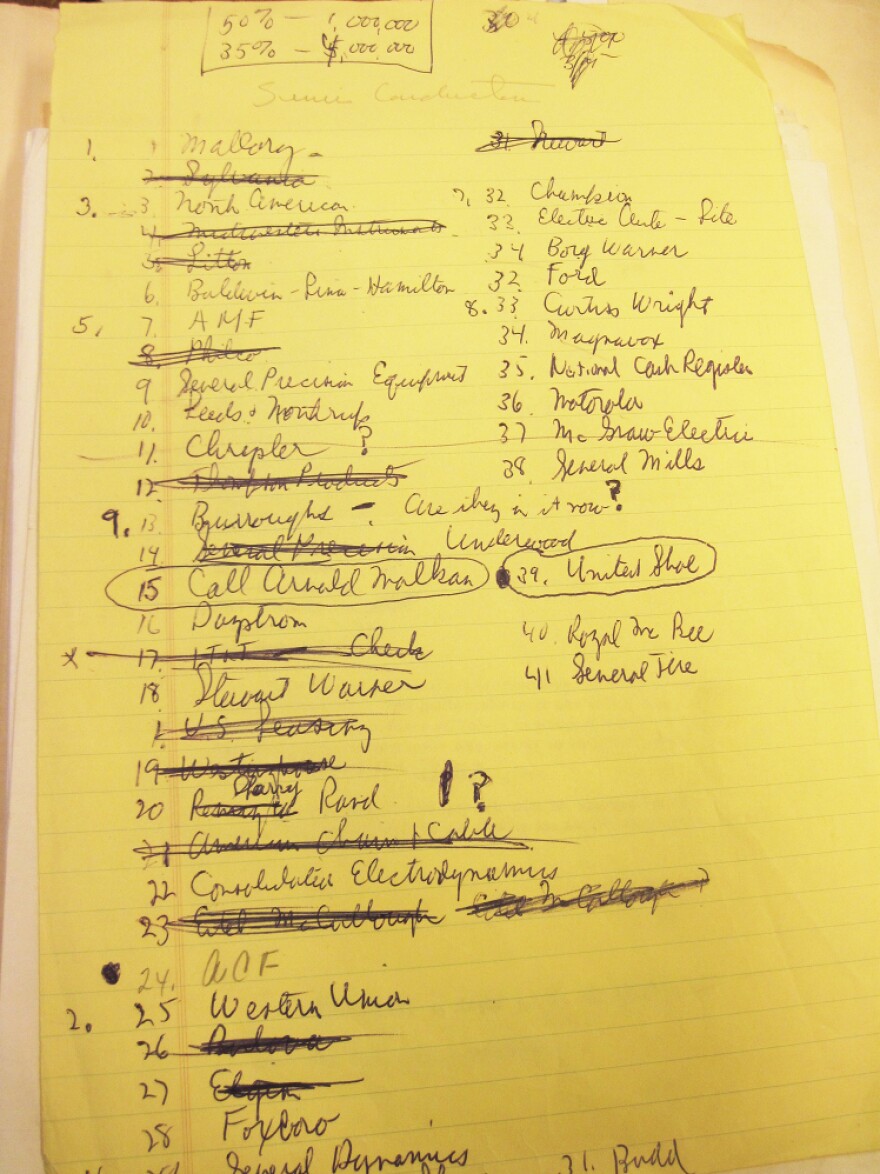 50% — 1,000,000
35% — $,000,000
30
Semi Conductor
1. 1 Mallory -
2. Sylvania
3. 3. North American
4. Midwestern Instruments
5. Litton
6. Baldwin-Lima-Hamilton
5. 7. AMF
8. Philco
9 General Precision Equipment
10. Leeds & Northrup
11. Chrysler ?
12 Thompson Products
9. 13 Burroughs - . Are they in it now?
14 General Precision Underwood
15 Call Arnold Malkan
16 Daystrom
x 17. I.T.&T Check
18 Stewart Warner
1. U.S. Leasing
19 Westinghouse
20 Sperry Rand 1 ?
21 American Chain & Cable
22 Consolidated Electrodynamics
23 Eitel McCullough Eitel McCullough
24. ACF
2. 25 Western Union
26 Bulova
27 Elgin
28 Foxboro
General Dynamics
31. Stewart
7. 32 Champion
33 Electric Auto-Lite
34 Borg Warner
32 Ford
8. 33 Curtiss Wright
34. Magnavox
35. National Cash Register
36 Motorola
37 McGraw-Electric
38 General Mills
39. United Shoe
40. Royal McBee
41 General Tire
31. Budd